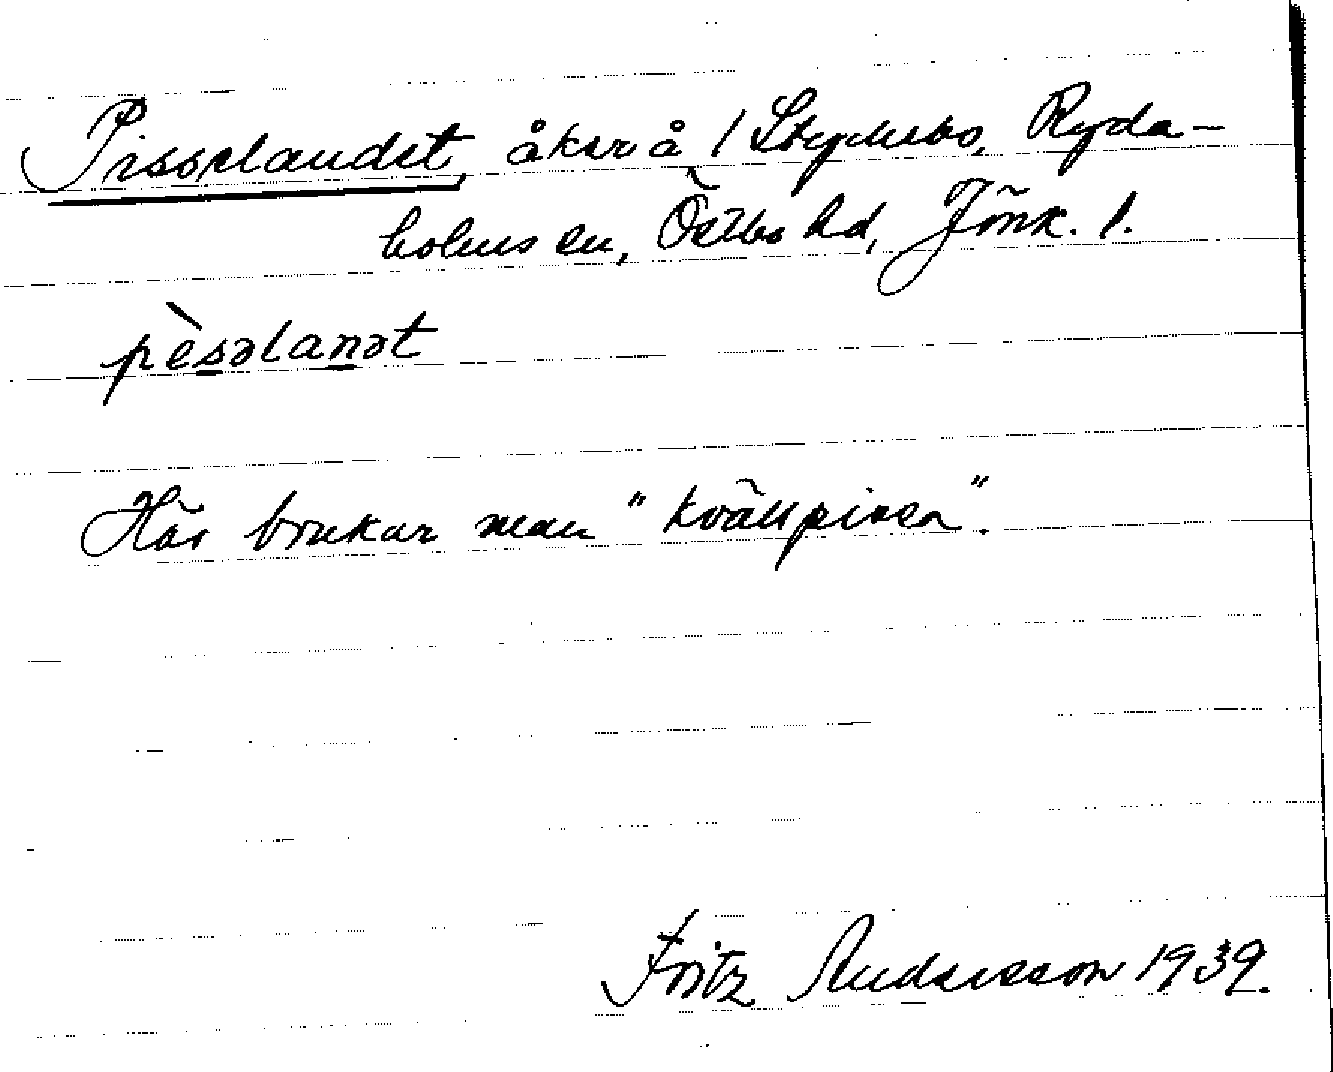 Pisselandet, åker å 1 Styckebo, Ryda-
holms sn, Östbo hd, Jönk. l.
pèsəlanət
Här brukar man "kvällpissa".
Fritz Andersson 1939.